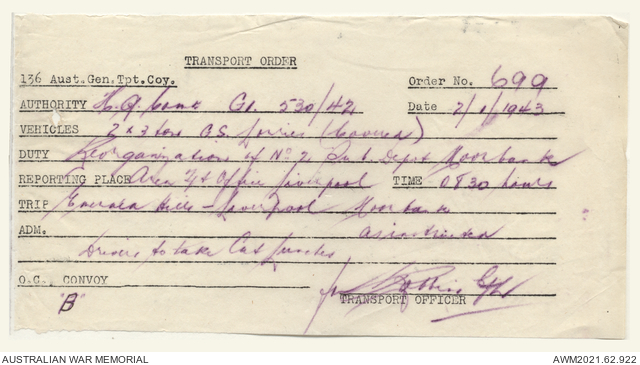 TRANSPORT ORDER
136 Aust.Gen.Tpt.Coy. Order No. 699
AUTHORITY H.Q. G1. 530/42 Date 2/1/1943
VEHICLES 2 x 3 ton G.S. Lorries (Covered)
DUTY Reorganization of No 2 Depot Moorbank
REPORTING PLACE Area Office Liverpool TIME 0830 hours
TRIP Hills - Liverpool Moorbank
ADM. as instructed
Drivers to take Cut Lunches
O.C. CONVOY
"B" TRANSPORT OFFICER
AUSTRALIAN WAR MEMORIAL AWM2021.62.922